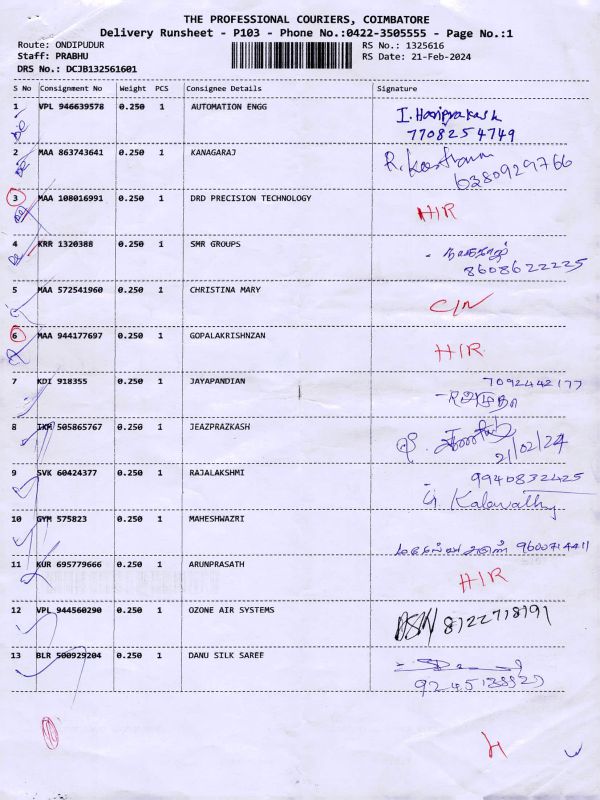 THE PROFESSIONAL COURIERS, COIMBATORE
Delivery Runsheet - P103 - Phone No.:0422-3505555 - Page No.:1
Route: ONDIPUDUR RS No.: 1325616
Staff: PRABHU RS Date: 21-Feb-2024
DRS No.: DCJB132561601
S No Consignment No Weight PCS Consignee Details Signature
1 VPL 946639578 0.250 1 AUTOMATION ENGG I. Hariprakash
7708254749
2 MAA 863743641 0.250 1 KANAGARAJ R.
6380929766
3 MAA 108016991 0.250 1 DRD PRECISION TECHNOLOGY HIR
4 KRR 1320388 0.250 1 SMR GROUPS
8608622225
5 MAA 572541960 0.250 1 CHRISTINA MARY C/N
6 MAA 944177697 0.250 1 GOPALAKRISHNZAN HIR
7 KDI 918355 0.250 1 JAYAPANDIAN 7092442177
8 505865767 0.250 1 JEAZPRAZKASH
21/02/24
9 SVK 60424377 0.250 1 RAJALAKSHMI 9940832425
G. Kalavathy
10 GYM 575823 0.250 1 MAHESHWAZRI 9600714411
11 KUR 695779666 0.250 1 ARUNPRASATH HIR
12 VPL 944560290 0.250 1 OZONE AIR SYSTEMS 8122718191
13 BLR 500929204 0.250 1 DANU SILK SAREE